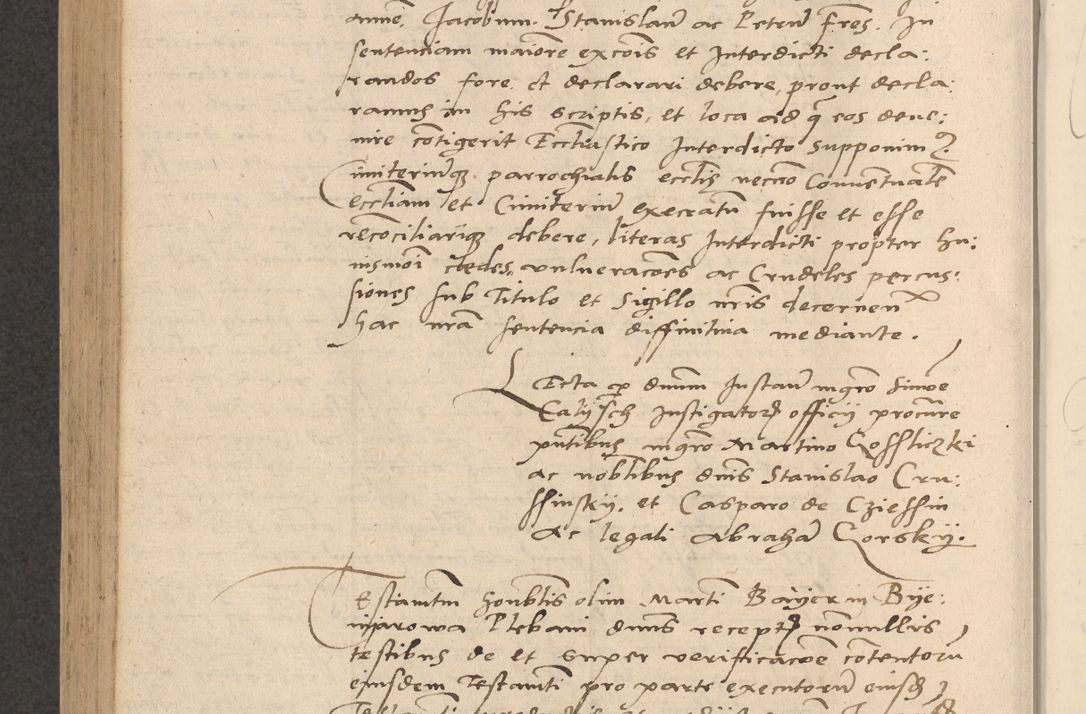 Jacobum Stanislaū ac Petrū frēs. In
sentenciam maiorē excōis et Interdicti decla:
randos fore et declarari debere, prout decla:
ramus in his scriptis, et loca ad q̄ eos deue:
nire cōtigerit Eccl̄iastico Interdicto supponim9
Cimiteriūq3 parrochialis eccl̄is necnō Conuentualē
eccl̄iam et Cimiteriū execratū fuisse et esse
recōciliariq3 debere, literas Interdicti propter hu:
iusmōi cedes, vulneracōes ac Crudeles percus:
siones sub Titulo et Sigillo nr̄is decernen̄
hac nr̄am sentencia diffinitiua mediante.
LEcta p dnūm Instan̄ mgrō Simōe
Calysch Instigatore officij procur̄e
pn̄tibus mgrō Martino Gossliczki
ac nobl̄ibus dnīs Stanislao Cru:
ssinskij. et Casparo de Cziessin
Ac legali Abrahā Gorskij.
TEstamtm̄ honbl̄is olim Marti Bayer in Bije:
Plebani dnūs recept nōnullis
testibus de et super verificacōe cōtentorū
eiusdem Testamti pro parte executorū eiusd